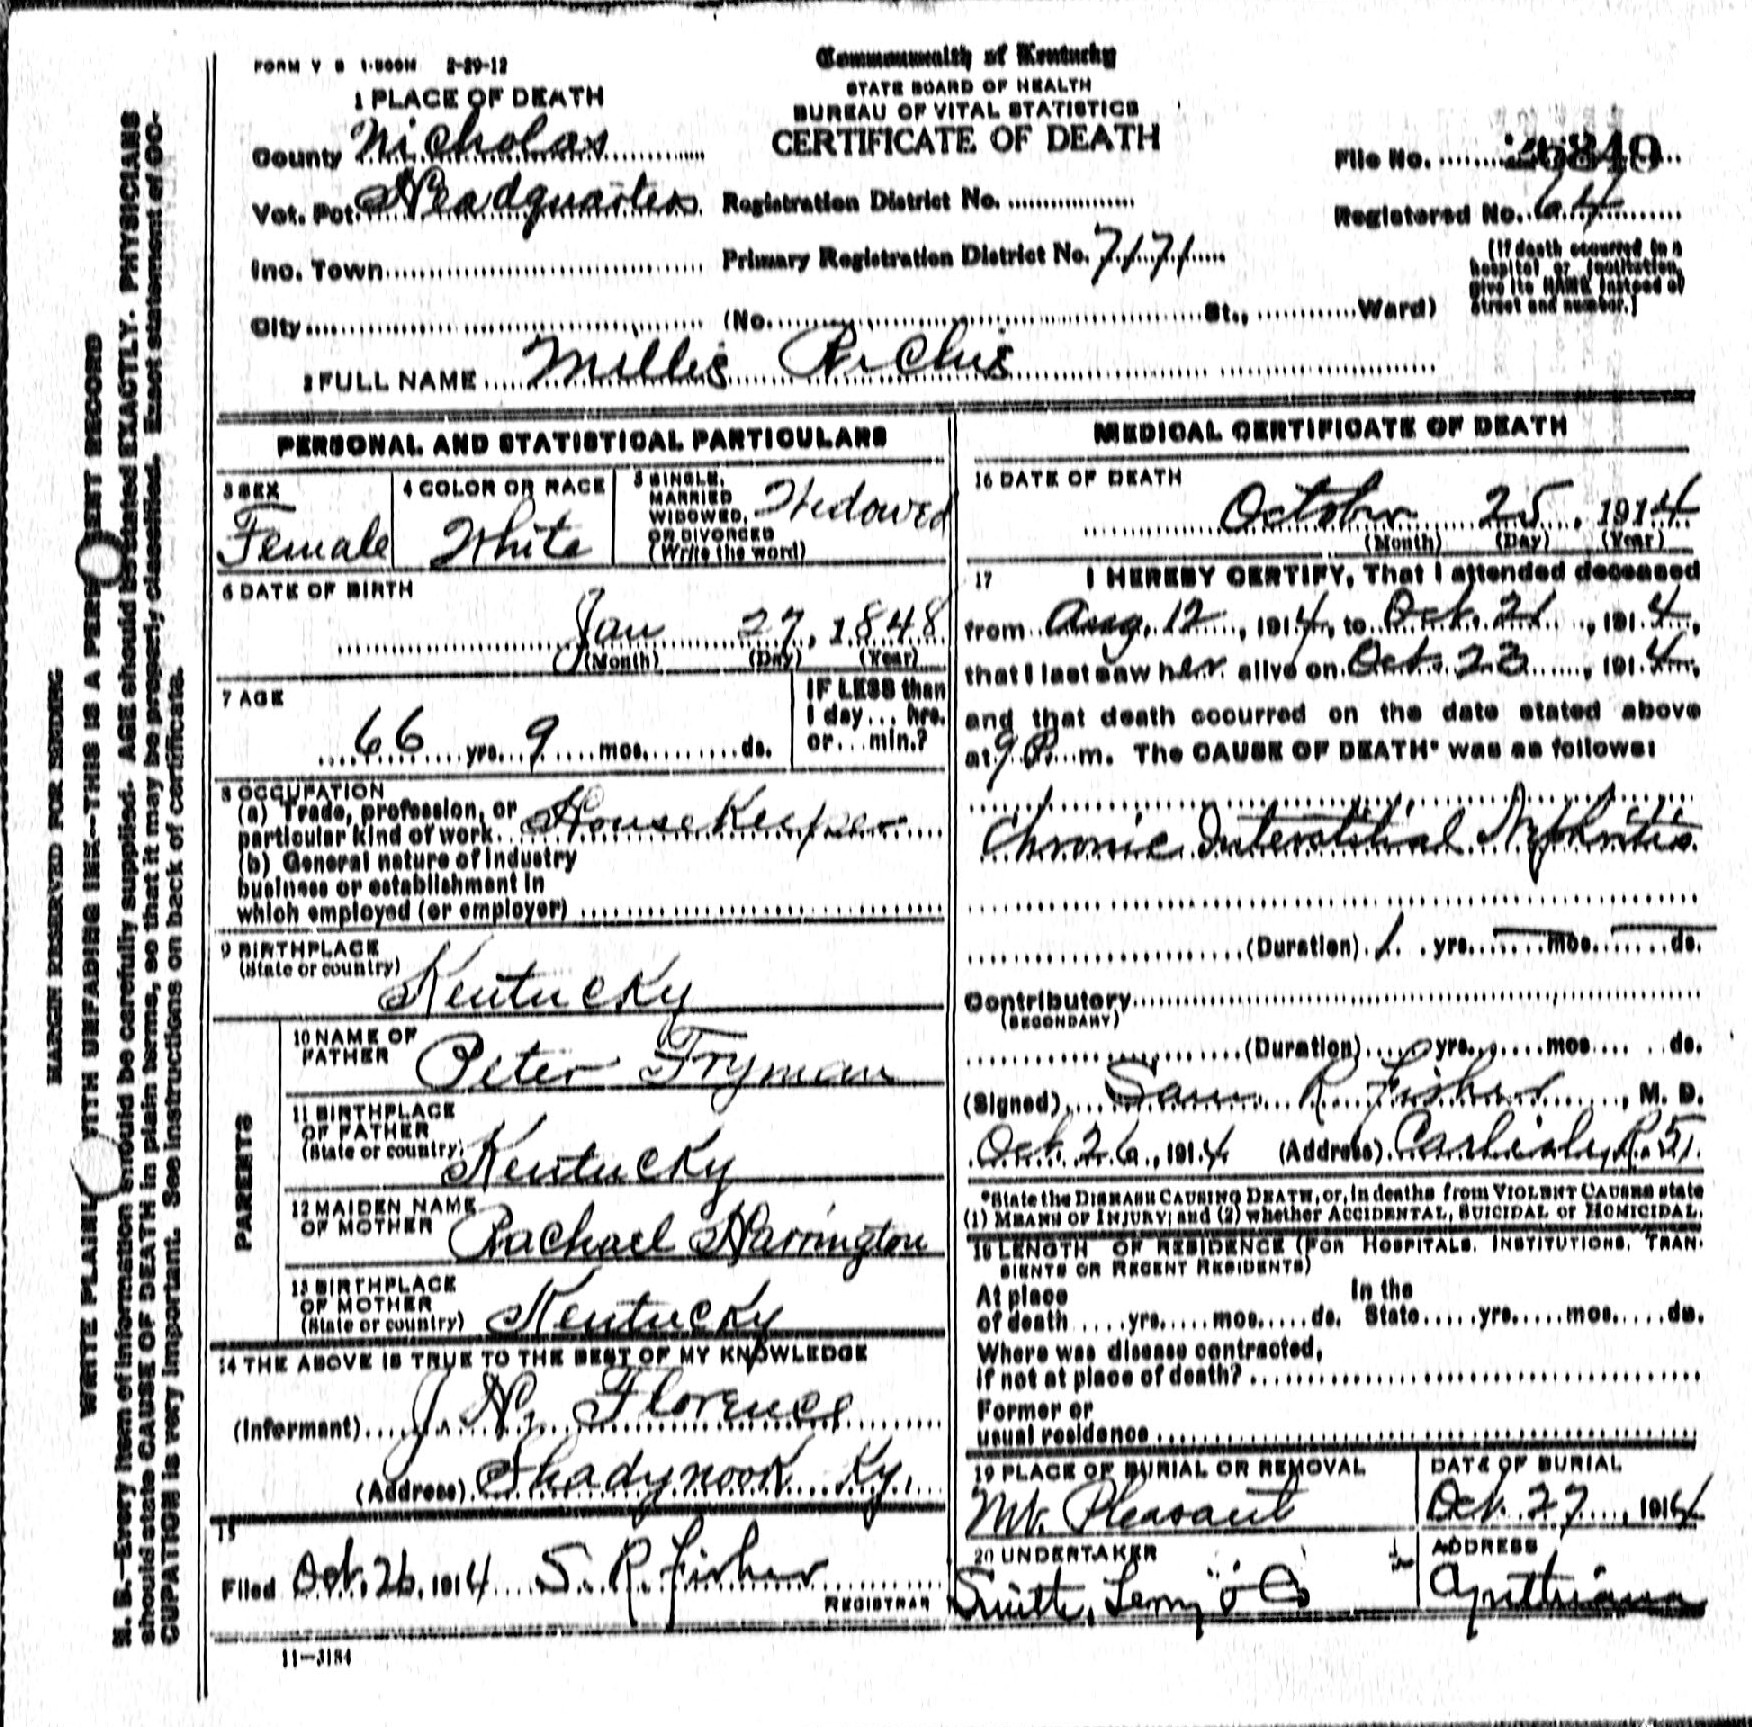 FORM V S 1-500M 2-29-12
Commonwealth of Kentucky
STATE BOARD OF HEALTH
BUREAU OF VITAL STATISTICS
CERTIFICATE OF DEATH
1 PLACE OF DEATH
County Nicholas
Vot. Pct. Headquarters Registration District No.
Inc. Town Primary Registration District No. 7171
City (No. St., Ward)
File No. 26840
Registered No. 64
(If death occurred in a
hospital or institution,
give its NAME instead of
street and number.]
2 FULL NAME Millie Richie
PERSONAL AND STATISTICAL PARTICULARS
3 SEX
Female
4 COLOR OR RACE
White
5 SINGLE,
MARRIED
WIDOWED,
OR DIVORCED
(Write the word)
Widowed
6 DATE OF BIRTH
Jan 27, 1848
(Month) (Day) (Year)
7 AGE
66 yrs. 9 mos. ds.
IF LESS than
1 day... hrs.
or...min.?
8 OCCUPATION
(a) Trade, profession, or
particular kind of work. House Keeper
(b) General nature of industry
business or establishment in
which employed (or employer)
9 BIRTHPLACE
(State or country)
Kentucky
PARENTS
10 NAME OF
FATHER
Peter Fryman
11 BIRTHPLACE
OF FATHER
(State or country)
Kentucky
12 MAIDEN NAME
OF MOTHER
Rachael Harrington
13 BIRTHPLACE
OF MOTHER
(State or country)
Kentucky
14 THE ABOVE IS TRUE TO THE BEST OF MY KNOWLEDGE
(Informant) J. H. Florence
(Address) Shadynook Ky.
15
Filed Oct. 26, 1914 S. R. Fisher
REGISTRAR
11-3184
MEDICAL CERTIFICATE OF DEATH
16 DATE OF DEATH
October 25, 1914
(Month) (Day) (Year)
17 I HEREBY CERTIFY, That I attended deceased
from Aug. 12, 1914, to Oct. 21, 1914,
that I last saw her alive on Oct. 23, 1914,
and that death occurred on the date stated above
at 9 P. m. The CAUSE OF DEATH* was as follows:
Chronic Interstitial Nephritis
(Duration) 1 yrs. mos. ds.
Contributory
(SECONDARY)
(Duration) yrs. mos. ds.
(Signed) Sam R. Fisher, M. D.
Oct. 26, 1914 (Address) Carlisle, R. 5.
*State the DISEASE CAUSING DEATH, or, in deaths from VIOLENT CAUSES state
(1) MEANS OF INJURY; and (2) whether ACCIDENTAL, SUICIDAL or HOMICIDAL.
18 LENGTH OF RESIDENCE (FOR HOSPITALS, INSTITUTIONS, TRAN-
SIENTS OR RECENT RESIDENTS)
At place In the
of death yrs. mos. ds. State yrs. mos. ds.
Where was disease contracted,
if not at place of death?
Former or
usual residence
19 PLACE OF BURIAL OR REMOVAL
Mt. Pleasant
DATE OF BURIAL
Oct. 27, 1914
20 UNDERTAKER
Smith, & Co
ADDRESS
Cynthiana
MARGIN RESERVED FOR BINDING
WRITE PLAINLY WITH UNFADING INK--THIS IS A PERMANENT RECORD
N. B.--Every item of information should be carefully supplied. AGE should be stated EXACTLY. PHYSICIANS
should state CAUSE OF DEATH in plain terms, so that it may be properly classified. Exact statement of OC-
CUPATION is very important. See instructions on back of certificate.